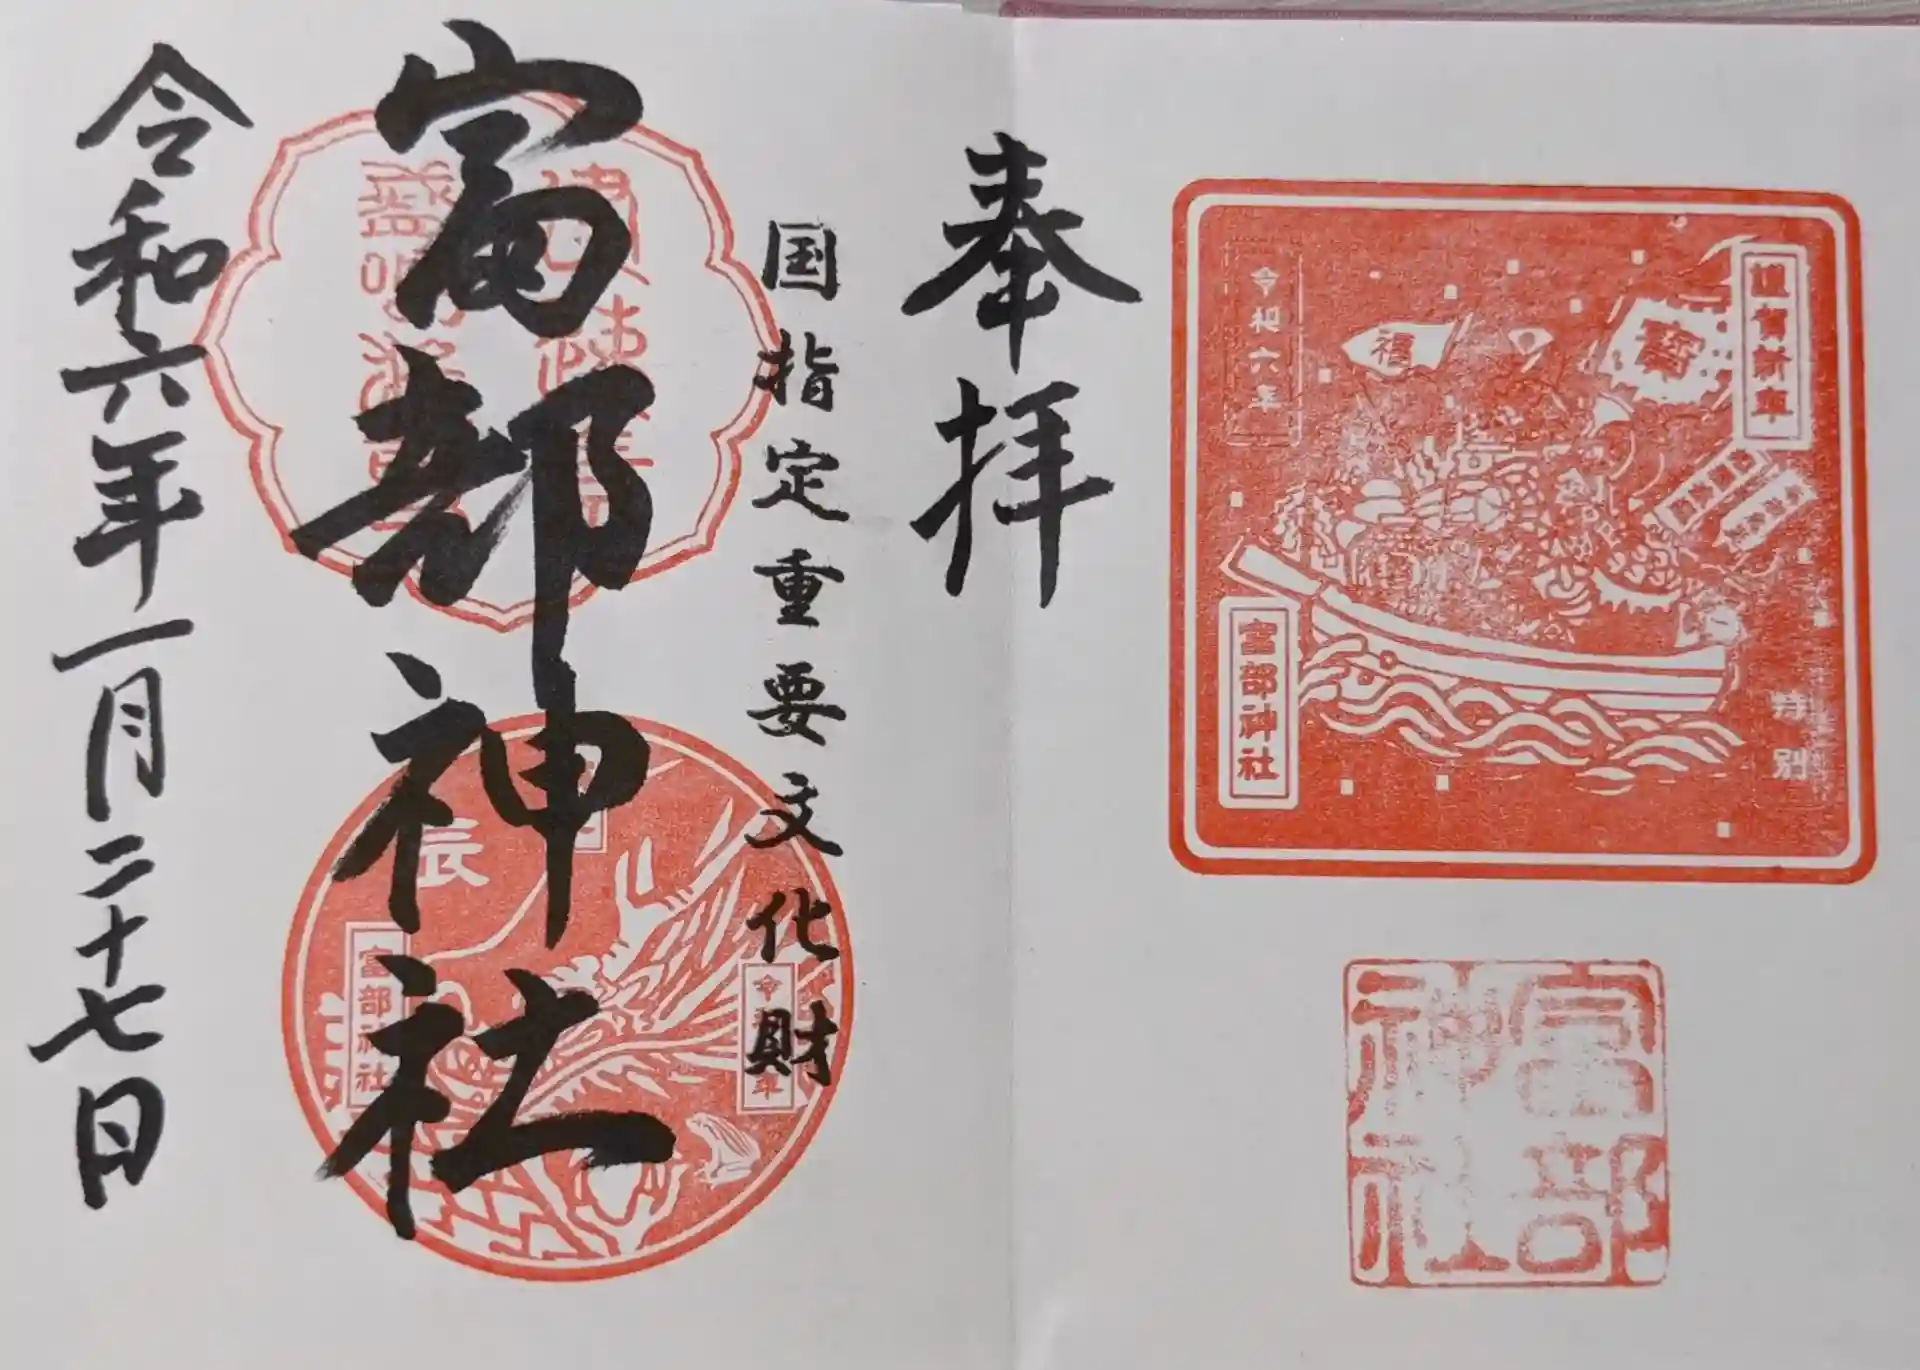 謹賀新年
寳
福
令和六年
富部神社
特別
富部神社
奉拝
国指定重要文化財
富部神社
辰
富部神社
令和六年一月二十七日